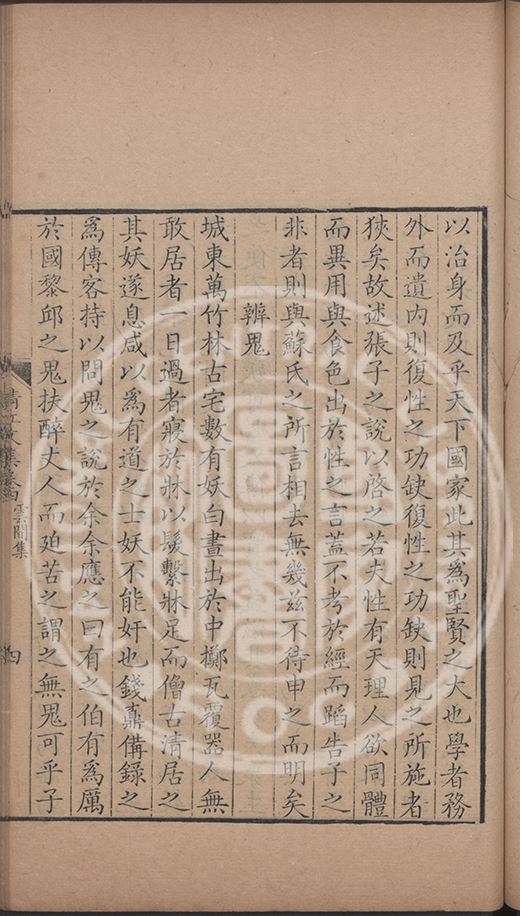 以治身而及乎天下國家此其為聖賢之大也學者務
外而遺內則復性之功缺復性之功缺則見之所施者
狹矣故述張子之說以啓之若夫性有天理人欲同體
而異用與食色出於性之言蓋不考於經而蹈告子之
非者則與蘇氏之所言相去無幾兹不待申之而明矣
辨鬼
城東萬竹林古宅數有妖白晝出於中擲瓦覆器人無
敢居者一日過者寢於牀以髮繫牀足而僧古清居之
其妖遂息咸以為有道之士妖不能奸也錢鼒備錄之
為傳客持以問鬼之說於余余應之曰有之伯有為厲
於國黎邱之鬼扶醉丈人而廹苦之謂之無鬼可乎子
清江文集卷 雲間集
四